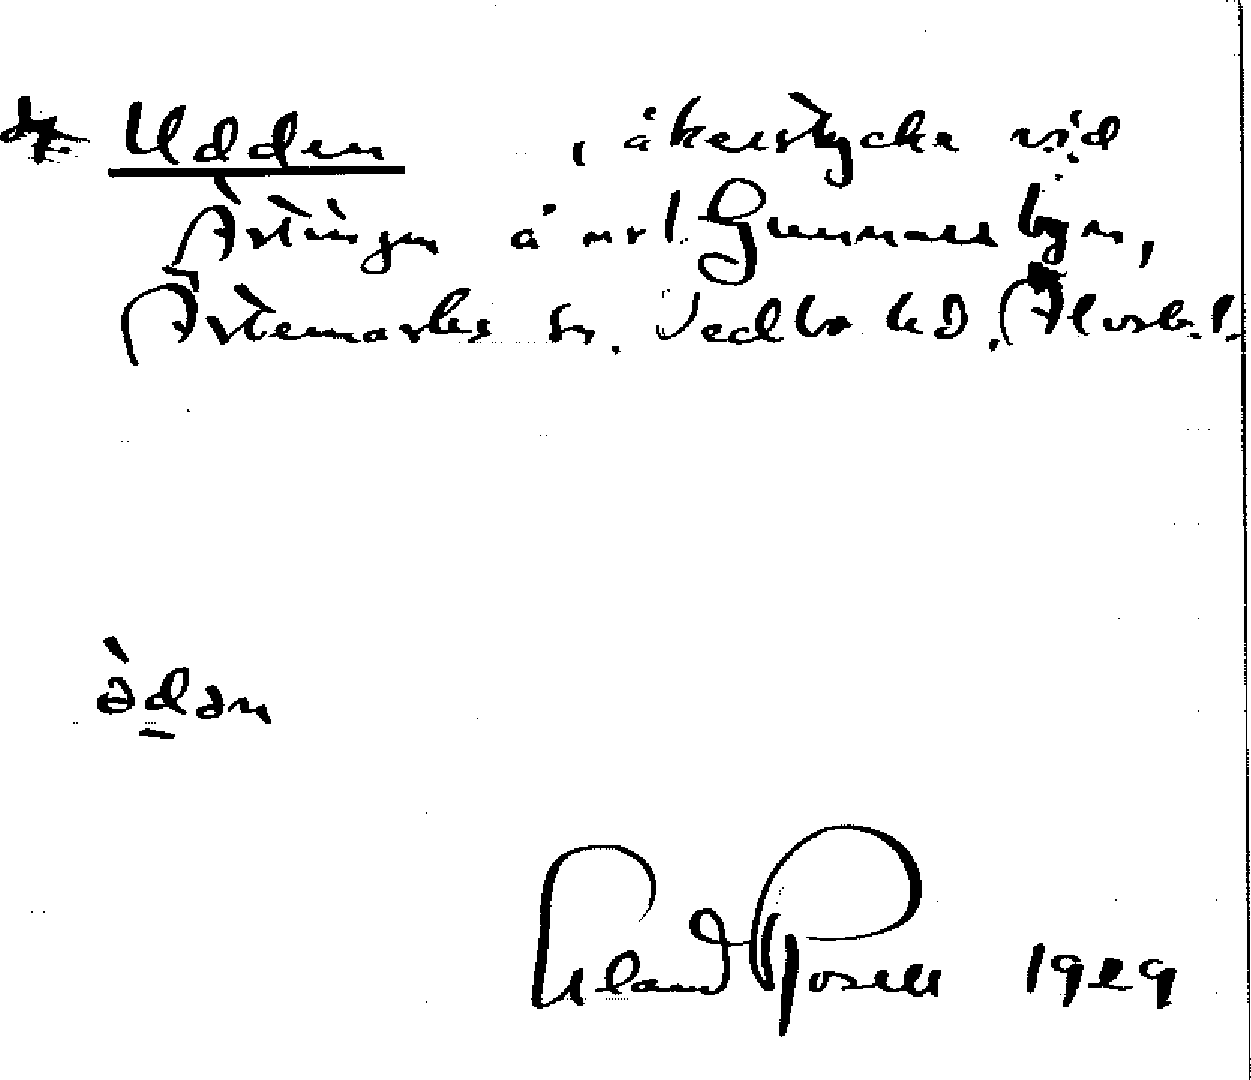 Udden , åkerstycke vid
Årtingen å nr 1 Gunnarsbyn,
Årtemarks sn. Vedbo hd. Älvsb. l.
ə̀dən
Erland Rosell 1929